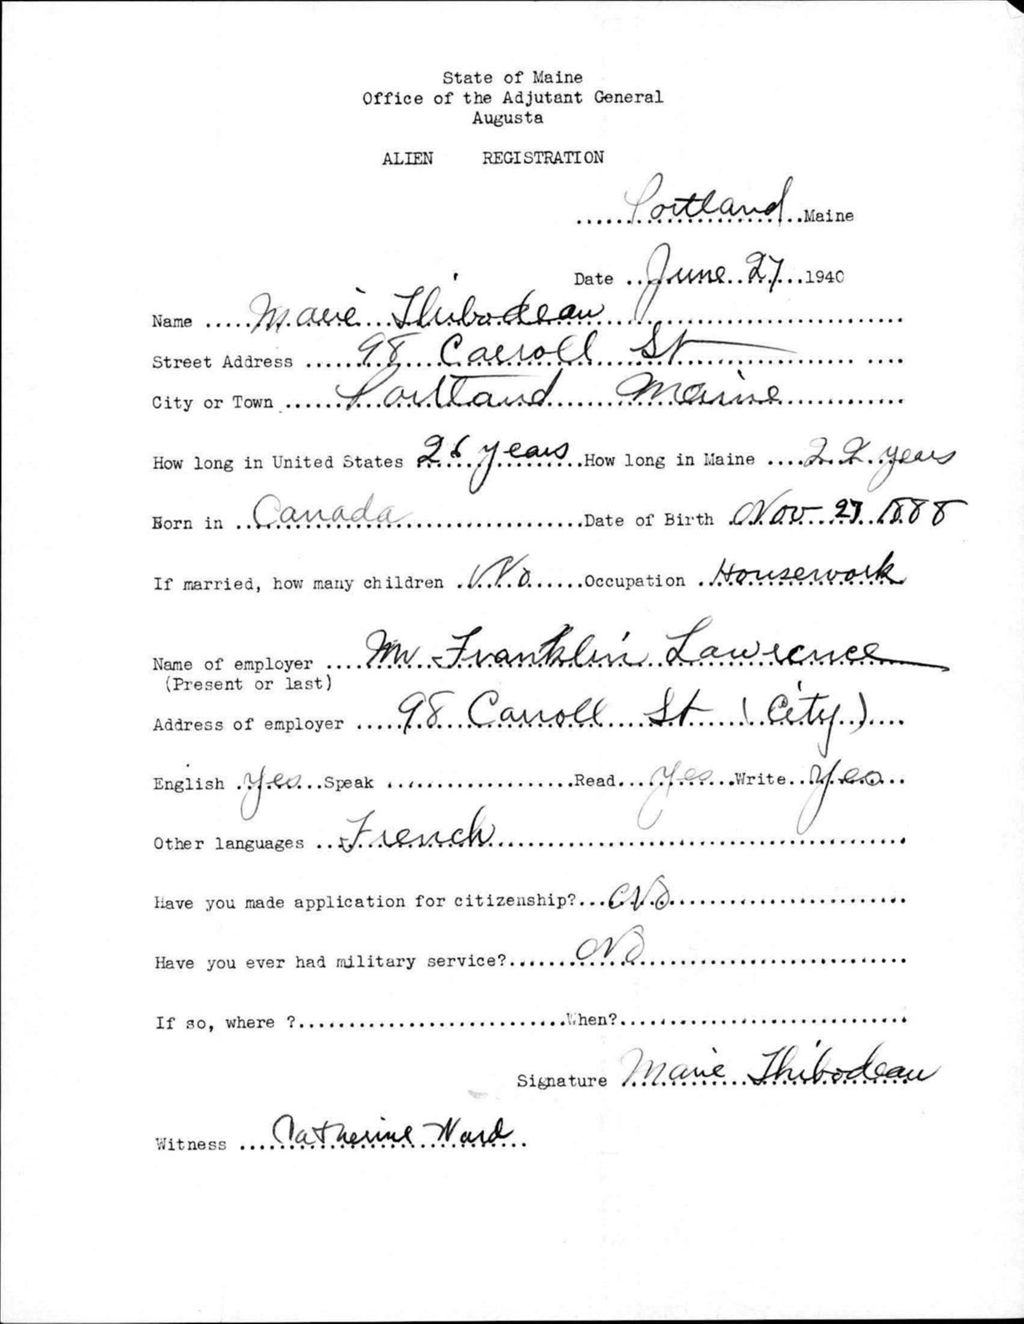 State of Maine
Office of the Adjutant General
Augusta
ALIEN REGISTRATION
......Portland..Maine
Date ..June 27...1940
Name .....Marie Thibodeau..............................
Street Address ......98 Carroll St.....................
City or Town ......Portland Maine............
How long in United States 26 years..How long in Maine ....22 years
Born in ..Canada.................................Date of Birth .Nov 27 1888
If married, how many children .No......Occupation ..Housework
Name of employer ....Mr Franklin Lawrence
(Present or last)
Address of employer ....98 Carroll St (City)....
English .Yes...Speak ...................Read...Yes...Write..Yes...
Other languages ..French........................................
Have you made application for citizenship?...No........................
Have you ever had military service?.......No...........................
If so, where ?..........................When?.............................
Signature Marie Thibodeau
Witness ....Catherine Ward..